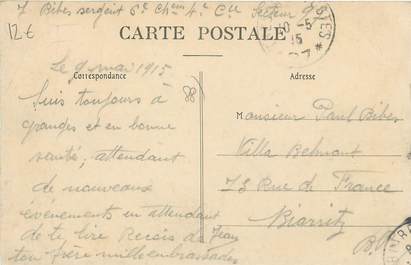 12€
J Bibes sergent 6e Chass 4e Cie Secteur
CARTE POSTALE
Correspondance
Adresse
Le 9 mai 1915
Suis toujours à
granges et en bonne
santé, attendant
de nouveaux
événements en attendant
de te lire Reçois de Jean
ton frère mille embrassades
Monsieur Paul Bibes
Villa Belmont
73 Rue de France
Biarritz
B.P.